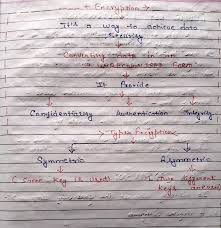 Encryption
It's a way to achieve data
Security
Converting data in an
unrecognised form
It Provide
Confidentiality Authentication Integrity
Types Encryption
Symmetric Asymmetric
(Same Key is used) (Two different
Keys are used)